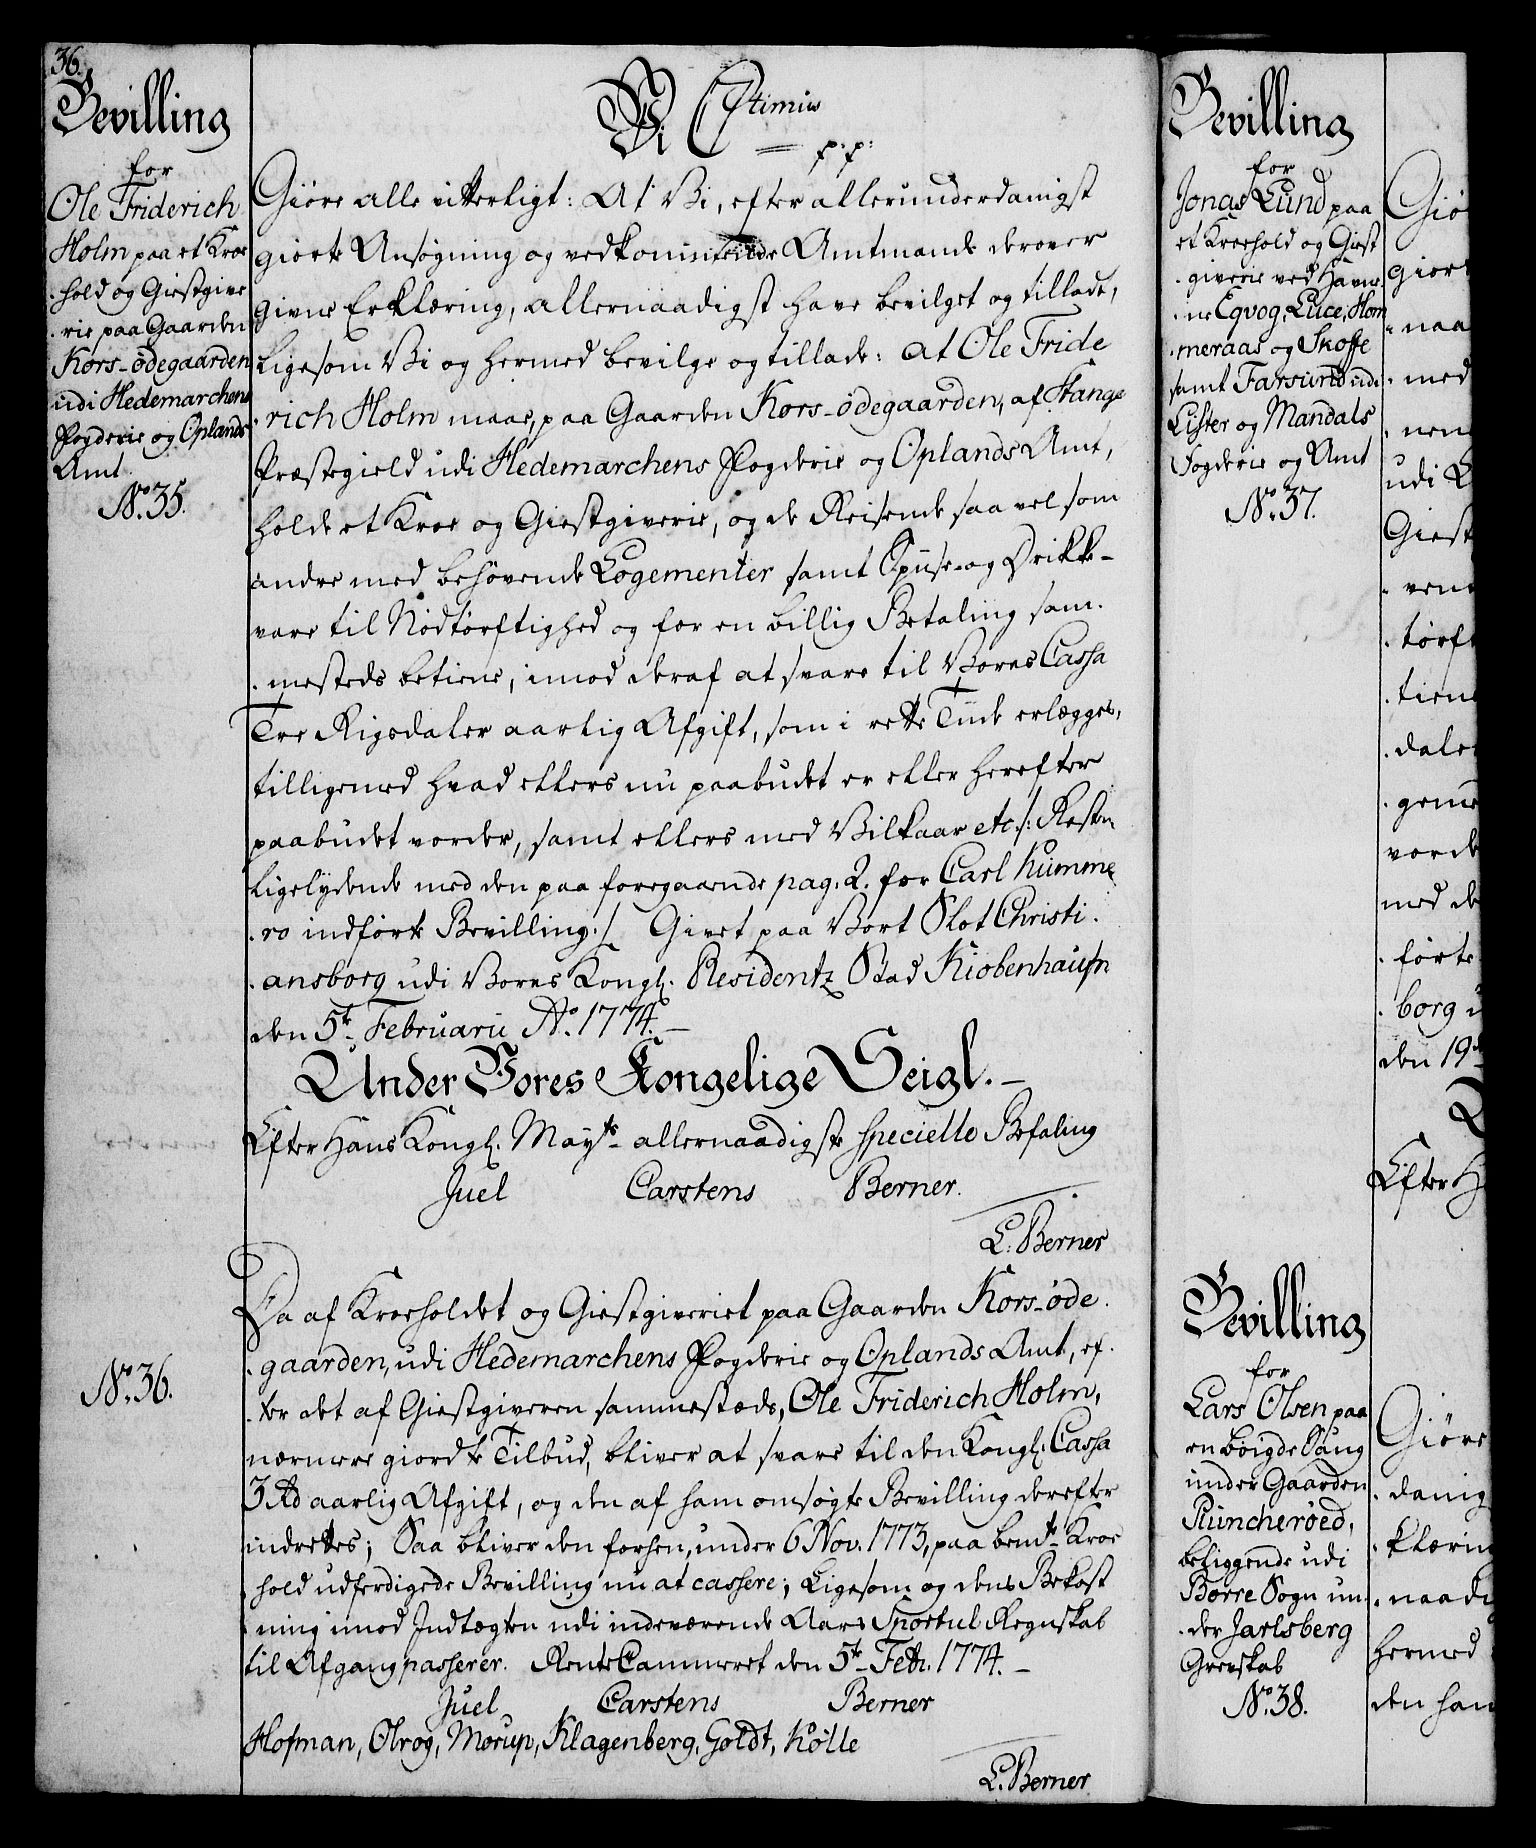 36.
Bevilling
for
Ole Friderich
Holm paa et Kroe
hold og Giestgive
rie paa Gaarden
Kors-ödegaarden
udi Hedemarchens
Fogderie og Oplands
Amt
No. 35.
Vi C Ptimus
p: p:
Giöre alle vitterligt: At Vi, efter allerunderdanigst
giorte Ansögning og vedkommende Amtmands derover
givne Erklæring, allernaadigst have bevilget og tilladt,
ligesom Vi og hermed bevilge og tillade: at Ole Fride
rich Holm maae, paa Gaarden Kors-ödegaarden, af Stange
Præstegield udi Hedemarchens Fogderie og Oplands Amt,
holde et Kroe og Giestgiverie, og de Reisende saa vel som
andre med behövende Logementer samt Spiise- og Drikke-
vare til Nödtörftighed og for en billig Betaling sam-
mesteds betiene, imod deraf at svare til Vores Cassa
Tre Rigsdaler aarlig Afgift, som i rette Tiid erlægges,
tilligemed hvad ellers nu paabudet er eller herefter
paabudet vorder, samt ellers med Vilkaar etc. /: Resten
ligelydende med den paa foregaaende pag. 2. for Carl Kumme
ro indförte Bevilling :/ Givet paa Vort Slot Christi
ansborg udi Vores Kongl. Residentz Stad Kiöbenhaufn
den 5te Februarii Ao. 1774.
Under Vores Kongelige Seigl.
Efter Hans Kongl. Mayts allernaadigste specielle Befaling
Juel Carstens Berner.
L. Berner
Da af Kroeholdet og Giestgiveriet paa Gaarden Kors-öde
gaarden, udi Hedemarchens Fogderie og Oplands Amt, ef
ter det af Giestgiveren sammesteds, Ole Friderich Holm,
nærmere giordte Tilbud, bliver at svare til den Kongl. Cassa
3 Rd aarlig Afgift, og den af ham ansögte Bevilling derefter
indrettes; Saa bliver den forhen, under 6 Nov. 1773, paa bemte Kroe
hold udferdigede Bevilling nu at cassere; Ligesom og dens Bekost
ning imod Indtægten udi indeværende Aars Sportul Regnskab
til Afgang passerer. RenteCammeret den 5te Febr. 1774.
Juel Carstens Berner
Hofman, Olrog, Mörup, Klagenberg, Goldt, Kölle
L. Berner
No. 36.
Bevilling
for
Jonas Lund paa
et Kroehold og Giest
giverie ved Havne
ne Eqvog, Luce, Hom
meraas og Skoffe
samt Farsund udi
Lister og Mandals
Fogderie og Amt
No. 37.
Giö
giort
naa
med
nen
udi L
Giest
vend
törft
tiene
dale
geme
vorde
med de
förte
borg u
den 19d
Efter H
Bevilling
for
Lars Olsen paa
en böigde Saug
under Gaarden
Runcheröed,
beliggende udi
Borre Sogn un
der Jarlsberg
Grevskab
No. 38.
Giöre
danig
klæring
naadig
hermed
den ham